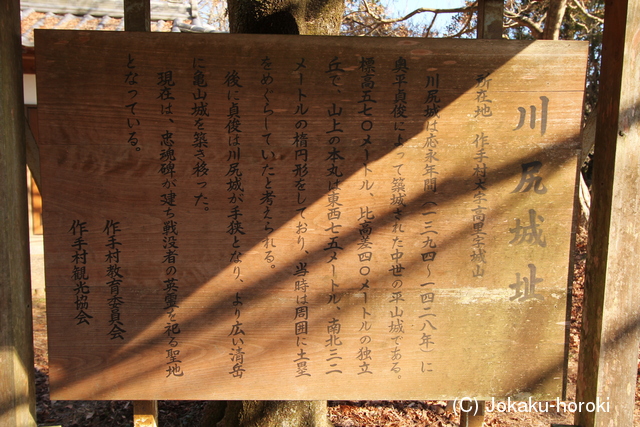 川尻城址
所在地 作手村大字高里字城山
川尻城は応永年間(一三九四~一四二八年)に
奥平貞俊によって築城された中世の平山城である。
標高五七〇メートル、比高差四〇メートルの独立
丘で、山上の本丸は東西七五メートル、南北三二
メートルの楕円形をしており、当時は周囲に土塁
をめぐらしていたと考えられる。
後に貞俊は川尻城が手狭となり、より広い清岳
に亀山城を築き移った。
現在は、忠魂碑が建ち戦没者の英霊を祀る聖地
となっている。
作手村教育委員会
作手村観光協会
(C) Jokaku-horoki